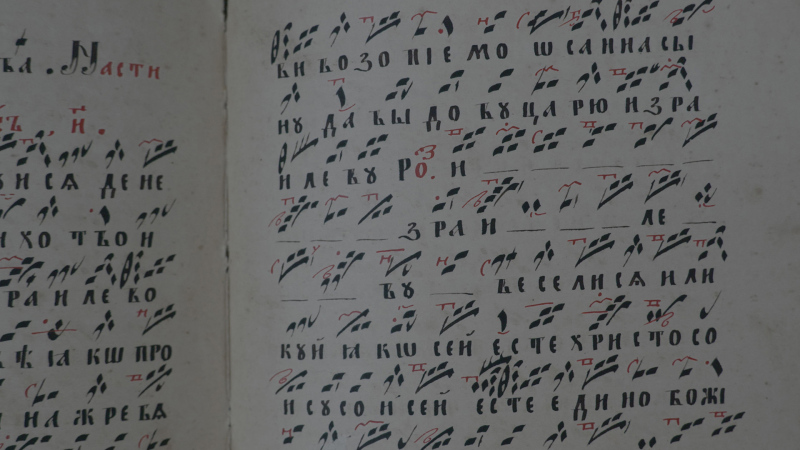 ъа . Масти
ръ , н҃ .
и сѧ де не
и хо тъо и
ра и ле во
ѣ ꙗ кѡ про
на ж ре бѧ
ви во зо пі е мо ѡ са н на сы
ну да вы до ву ца рю и зра
и ле ву ро. и
з ра и ле
ву ве се ли сѧ и ли
куй ꙗ кѡ сей есте христосо
и су со и сей есте е ди но божі